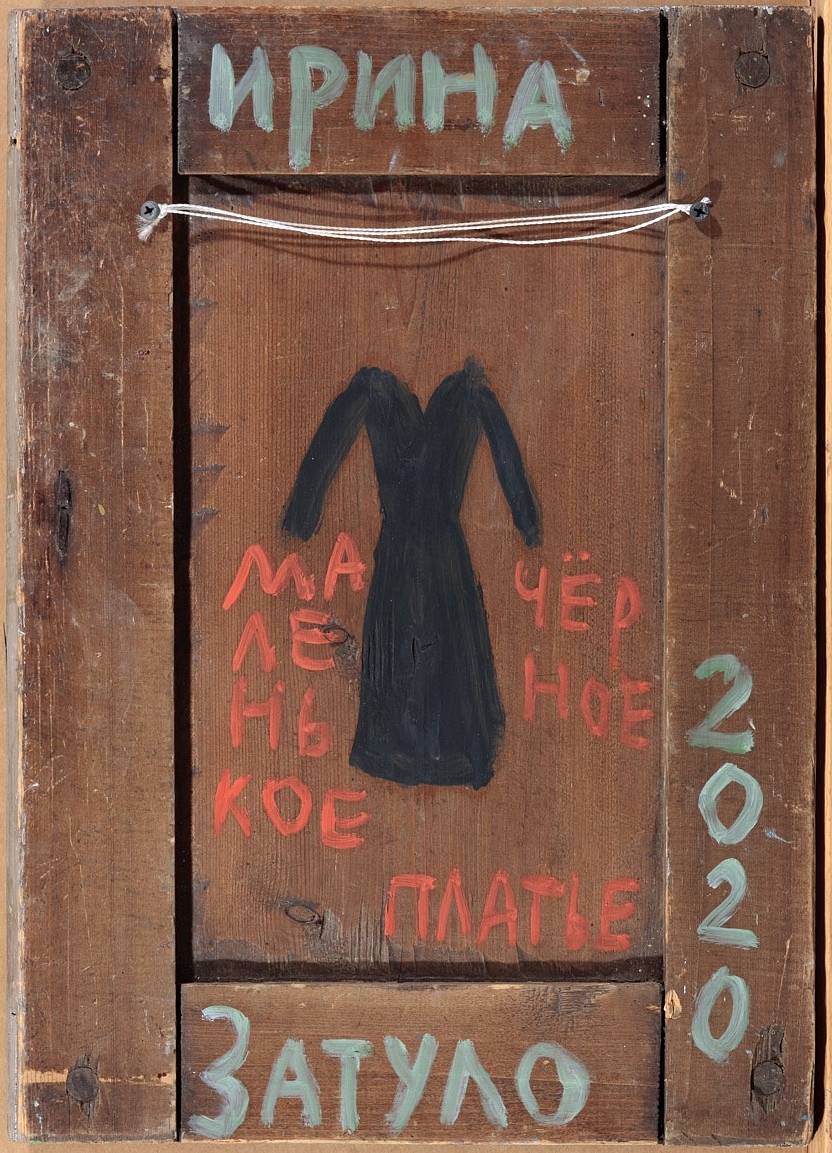 ИРИНА
МА
ЛЕ
НЬ
КОЕ
ЧЁР
НОЕ
ПЛАТЬЕ
2020
ЗАТУЛО